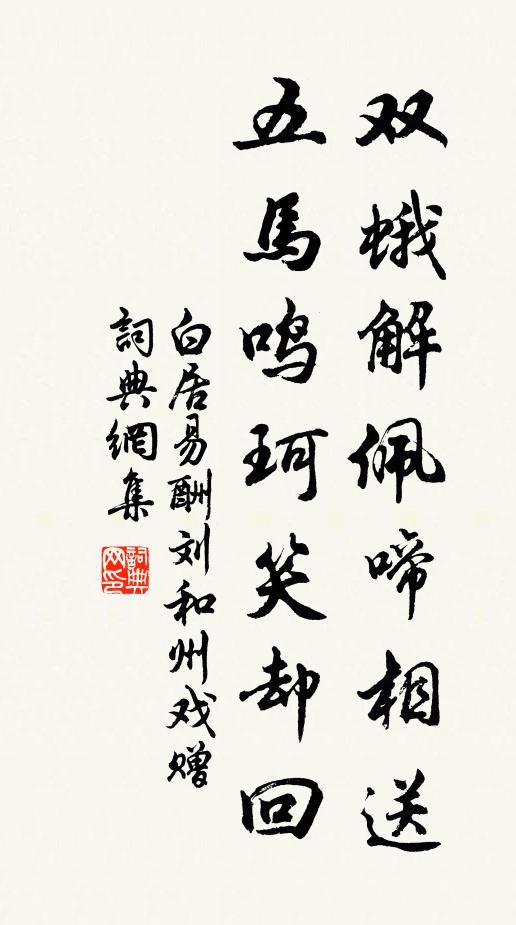 双蛾解佩啼相送
五馬鸣珂笑却回
白居易酬刘和州戏赠
詞典網集
詞典网印